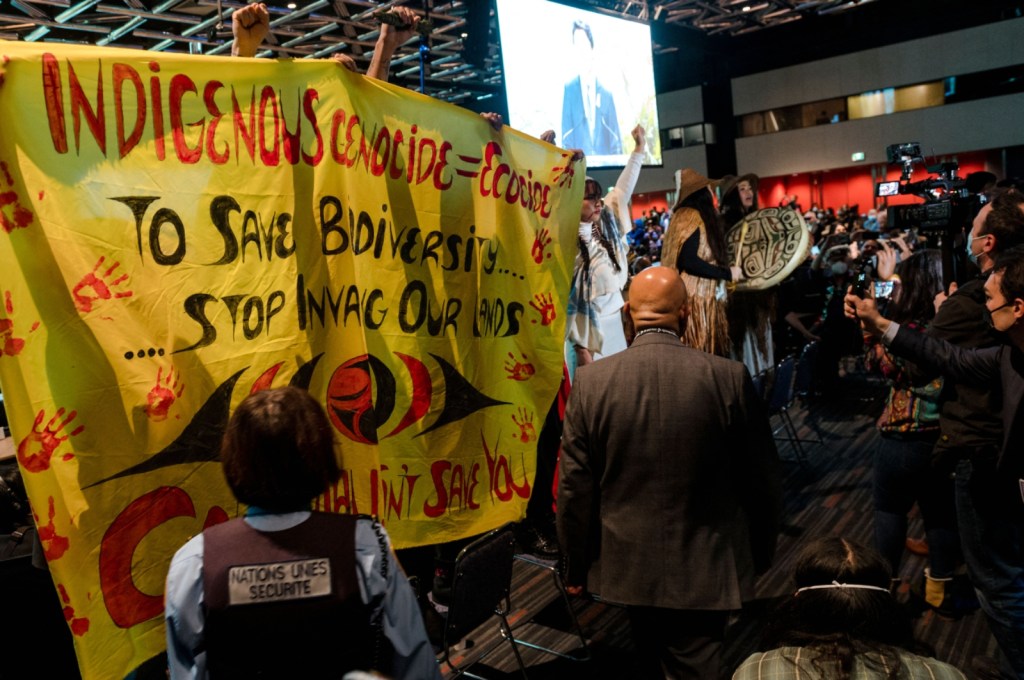 INDIGENOUS GENOCIDE = ECOCIDE
TO SAVE BIODIVERSITY....
.....STOP INVADING OUR LANDS
SAVE YOU
NATIONS UNIES
SECURITE